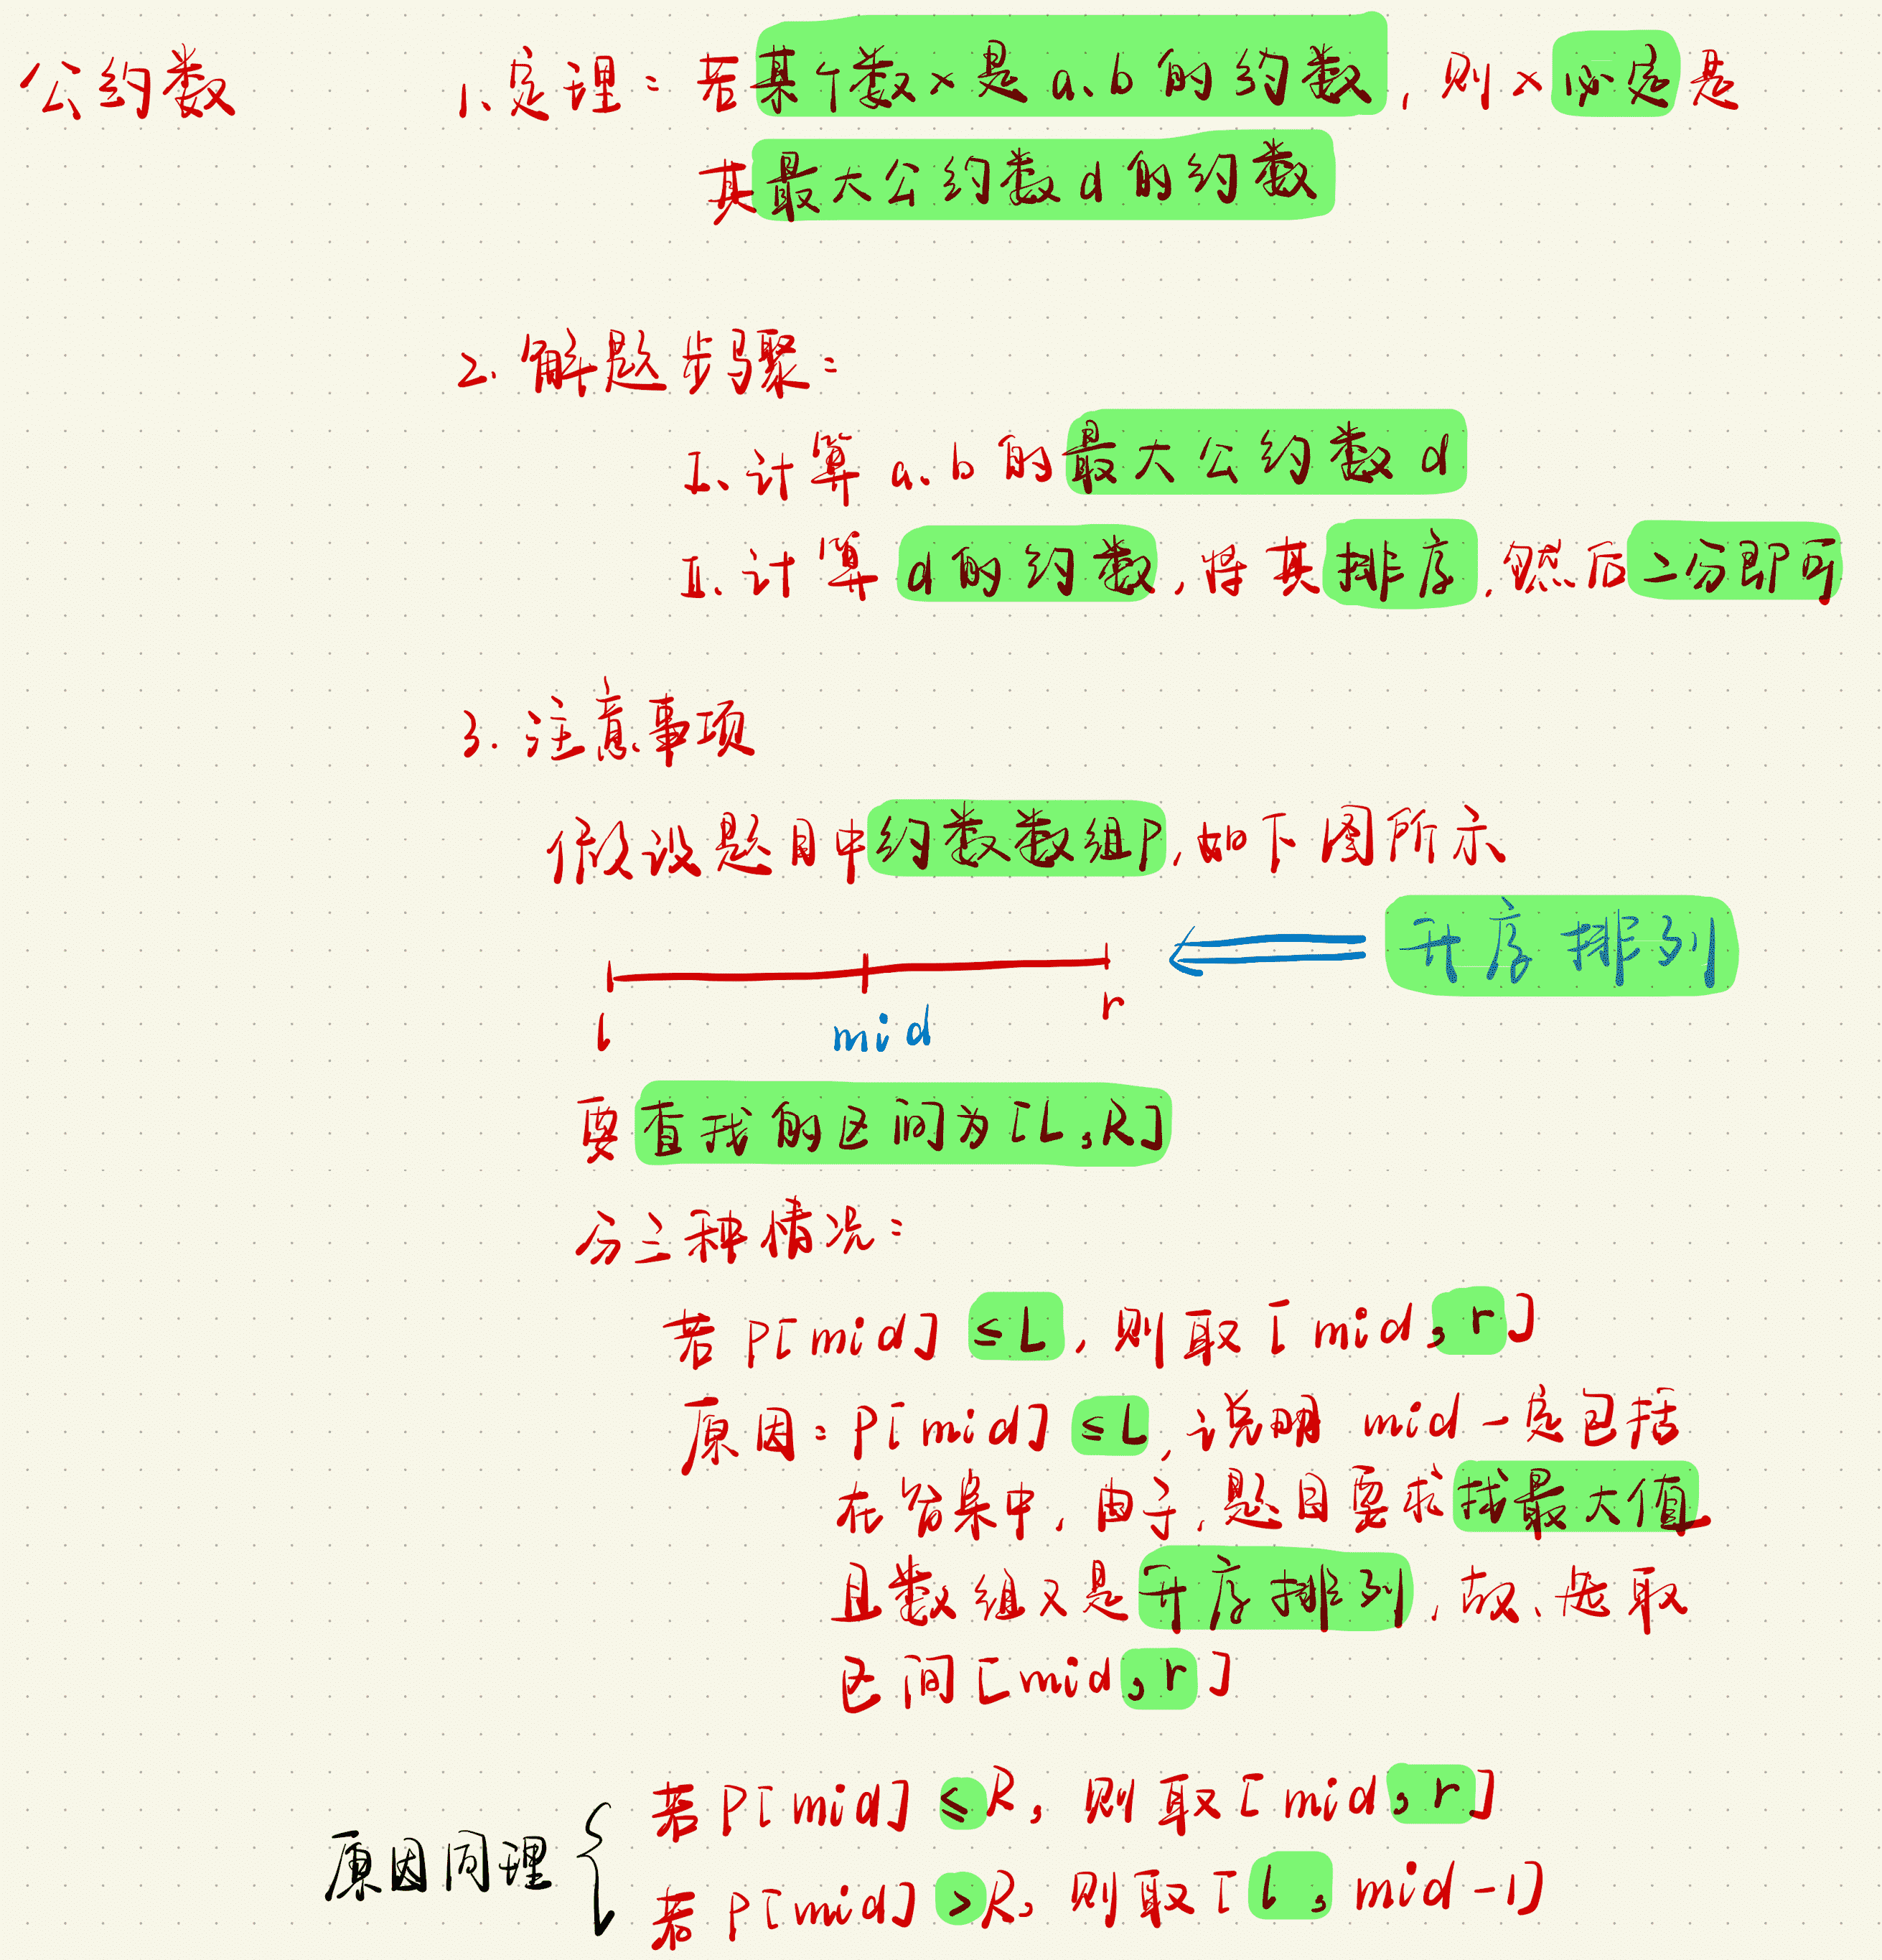 公约数
1、定理：若某个数x是a、b的约数，则x必定是
其最大公约数d的约数
2. 解题步骤：
I、计算a、b的最大公约数d
II、计算d的约数，将其排序，然后二分即可
3. 注意事项
假设题目中约数数组P，如下图所示
升序排列
l
mid
r
要查找的区间为[L,R]
分三种情况：
若P[mid]≤L，则取[mid,r]
原因：P[mid]≤L，说明mid一定包括
在答案中，由于，题目要求找最大值
且数组又是升序排列，故、选取
区间[mid,r]
原因同理
若P[mid]≤R，则取[mid,r]
若P[mid]>R，则取[l,mid-1]